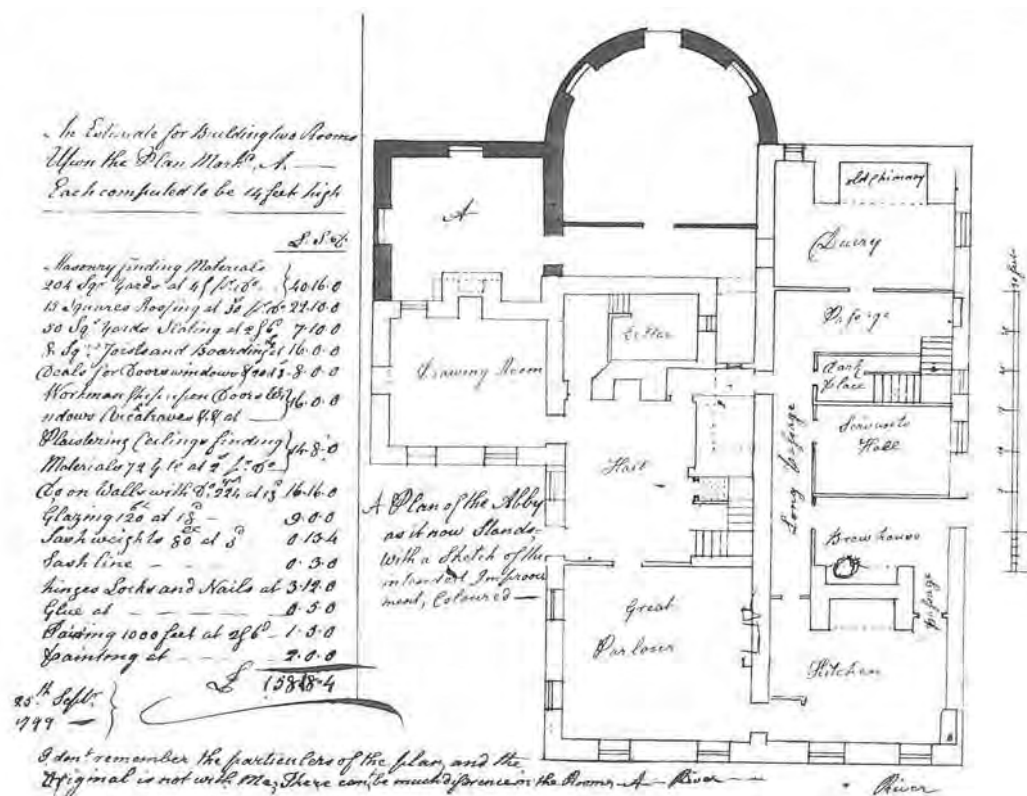 An Estimate for Building two Rooms
Upon the Plan Mark.d A. —
Each computed to be 14 feet high
L. S. D.
Masonry finding Materials
204 Sqr. Yards at 4/ pr. Do. 40.16.0
15 Squares Roofing at 30/ pr. Do. 22.10.0
50 Sq. Yards Slating at 7.10.0
8 Sq. Joists and Boarding at 16.0.0
Deals for Doors windows & 8.0.0
Workmanship upon Doors Wi
ndows Architraves &.& at 16.0.0
Plaistering Ceilings finding
Materials 72 Y at 2/ pr. Do. 14.8.0
Do on Walls with Do. 224 at 16.16.0
Glazing 120 at 9.0.0
Sash weights 80 at 0.13.4
Sash line — — 0.3.0
hinges Locks and Nails at 3.12.0
Glue at — 0.5.0
1000 feet at 2/6 1.5.0
painting at — 2.0.0
£ 158.18.4
25th Septr.
1799 —
I don't remember the particulers of the plan, and the
Original is not with Me, There can't be much difference in the Rooms A
A Plan of the Abby
as it now Stands,
With a Sketch of the
intended Improve
ment, Coloured —
A
old Chimney
Dairy
Cellar
Passage
Drawing Room
Dark
place
Servants
Hall
Hall
Long Passage
Brewhouse
Great
Parlour
Passage
Kitchen
River
River